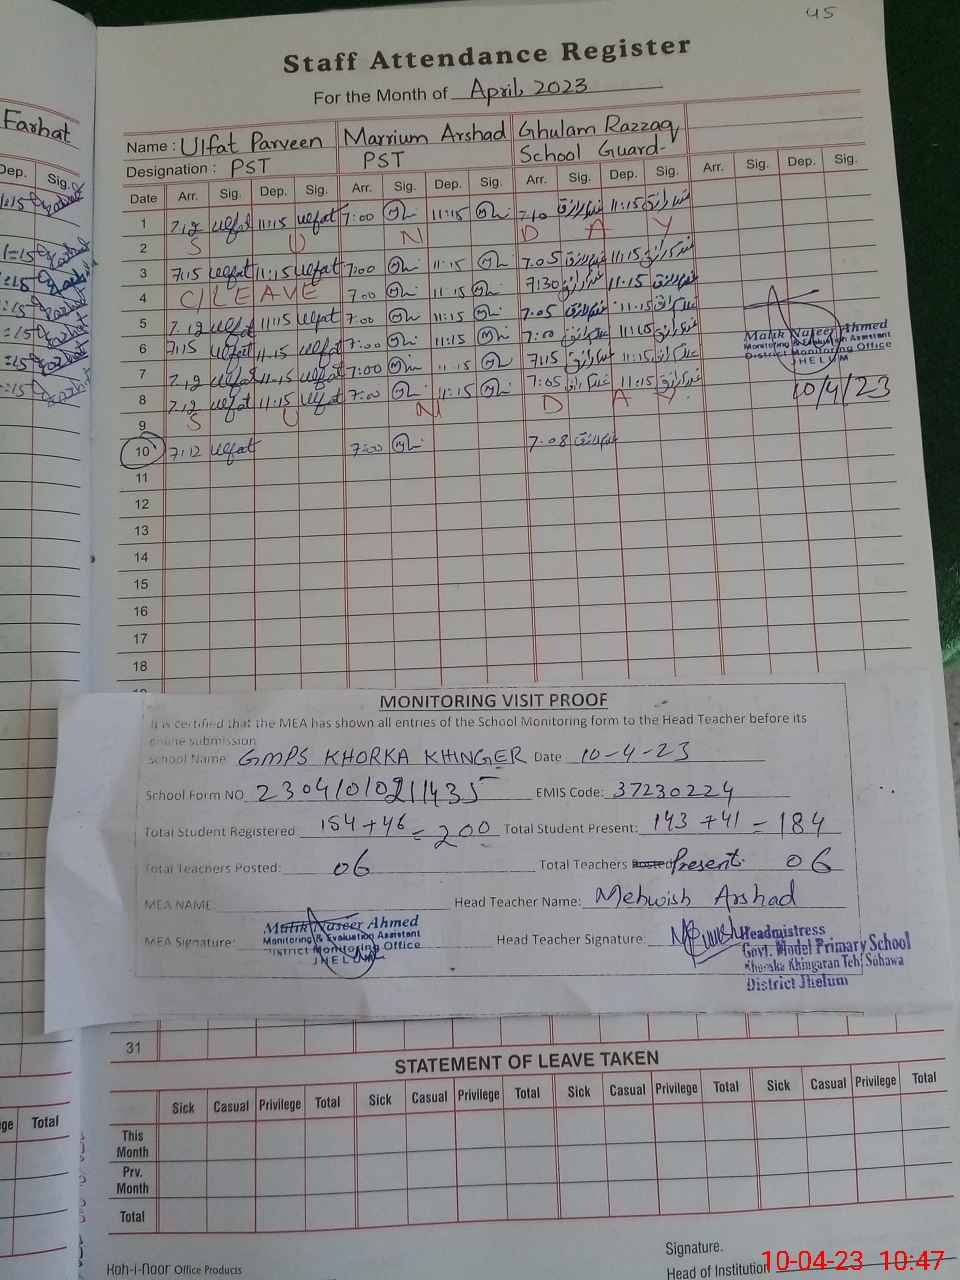 45
Staff Attendance Register
For the Month of April, 2023
Farhat
Name : Ulfat Parveen Marrium Arshad Ghulam Razzaq
Designation : PST PST School Guard
Dep. Sig.
Date Arr. Sig. Dep. Sig. Arr. Sig. Dep. Sig. Arr. Sig. Dep. Sig. Arr. Sig. Dep. Sig.
1 7.12 ulfat 11:15 ulfat 7:00 11:15 7.10 11:15
2 S U N D A Y
3 7:15 ulfat 11:15 ulfat 7:00 11:15 7.05 11:15
4 C/LEAVE 7:00 11:15 7:30 11:15
5 7.12 ulfat 11:15 ulfat 7:00 11:15 7:05 11:15
6 7:15 ulfat 11.15 ulfat 7:00 11:15 7:00 11:15
7 7.12 ulfat 11.15 ulfat 7:00 11.15 7:15 11:15
8 7.12 ulfat 11:15 ulfat 7:00 11:15 7:05 11:15
9 S U N D A Y
10 7:12 ulfat 7:00 7.08
Malik Naseer Ahmed
Monitoring & Evaluation Assistant
District Monitoring Office
JHELUM
10/4/23
11
12
13
14
15
16
17
18
MONITORING VISIT PROOF
It is certified that the MEA has shown all entries of the School Monitoring form to the Head Teacher before its
online submission
School Name: GMPS KHORKA KHINGER Date 10-4-23
School Form NO EMIS Code: 37230224
Total Student Registered 154+46=200 Total Student Present: 143+41=184
Total Teachers Posted: 06 Total Teachers Posted Present. 06
MEA NAME: Head Teacher Name: Mehwish Arshad
MEA Signature: Malik Naseer Ahmed
Monitoring & Evaluation Assistant
District Monitoring Office
JHELUM
Head Teacher Signature: Headmistress
Govt. Model Primary School
Khingaran Teh: Sohawa
District Jhelum
31
STATEMENT OF LEAVE TAKEN
Sick Casual Privilege Total Sick Casual Privilege Total Sick Casual Privilege Total Sick Casual Privilege Total
Total
This Month
Prv. Month
Total
Signature.
Head of Institution
Koh-i-noor Office Products
10-04-23 10:47